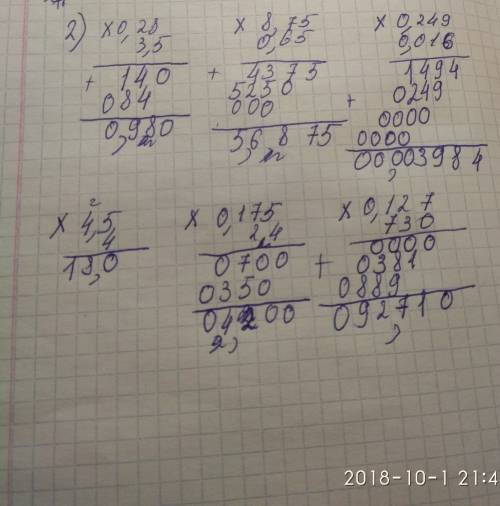 2) × 0,28
3,5
+ 140
084
0,980
× 8,75
0,65
+ 4375
5250
000
5,6875
× 0,249
0,016
1494
+ 0249
0000
0000
0,0003984
2
× 4,5
4
18,0
× 0,175
2,4
0700
0350
04200
× 0,127
730
0000
+ 0381
0889
092,710
2018-10-1 21:4